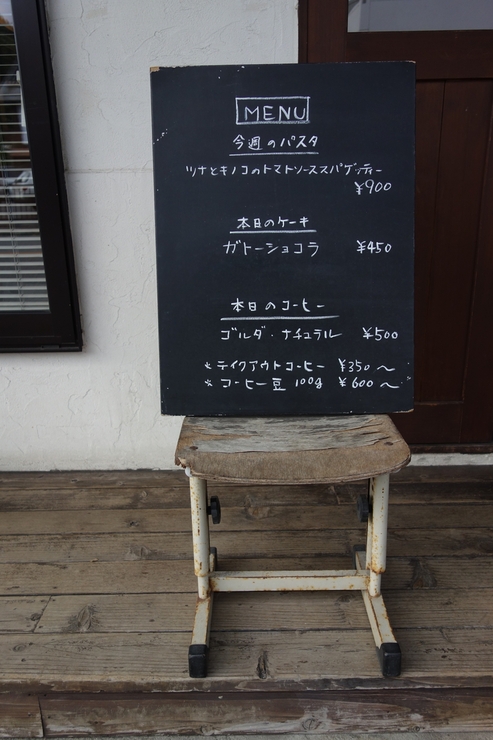 MENU
今週のパスタ
ツナとキノコのトマトソーススパゲッティー
¥900
本日のケーキ
ガトーショコラ ¥450
本日のコーヒー
ゴルダ・ナチュラル ¥500
※テイクアウトコーヒー ¥350~
※コーヒー豆 100g ¥600~